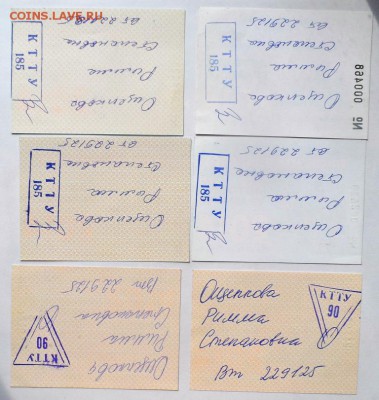 COINS.LAVE.RU
Ощепкова
Римма
Степановна
вт 229125
КТТУ
185
Ощепкова
Римма
Степановна
вт 229125
КТТУ
185
№ 000498
Ощепкова
Римма
Степановна
вт 229125
КТТУ
185
Ощепкова
Римма
Степановна
вт 229125
КТТУ
185
Ощепкова
Римма
Степановна
Вт 229125
КТТУ
90
Ощепкова
Римма
Степановна
Вт 229125
КТТУ
90